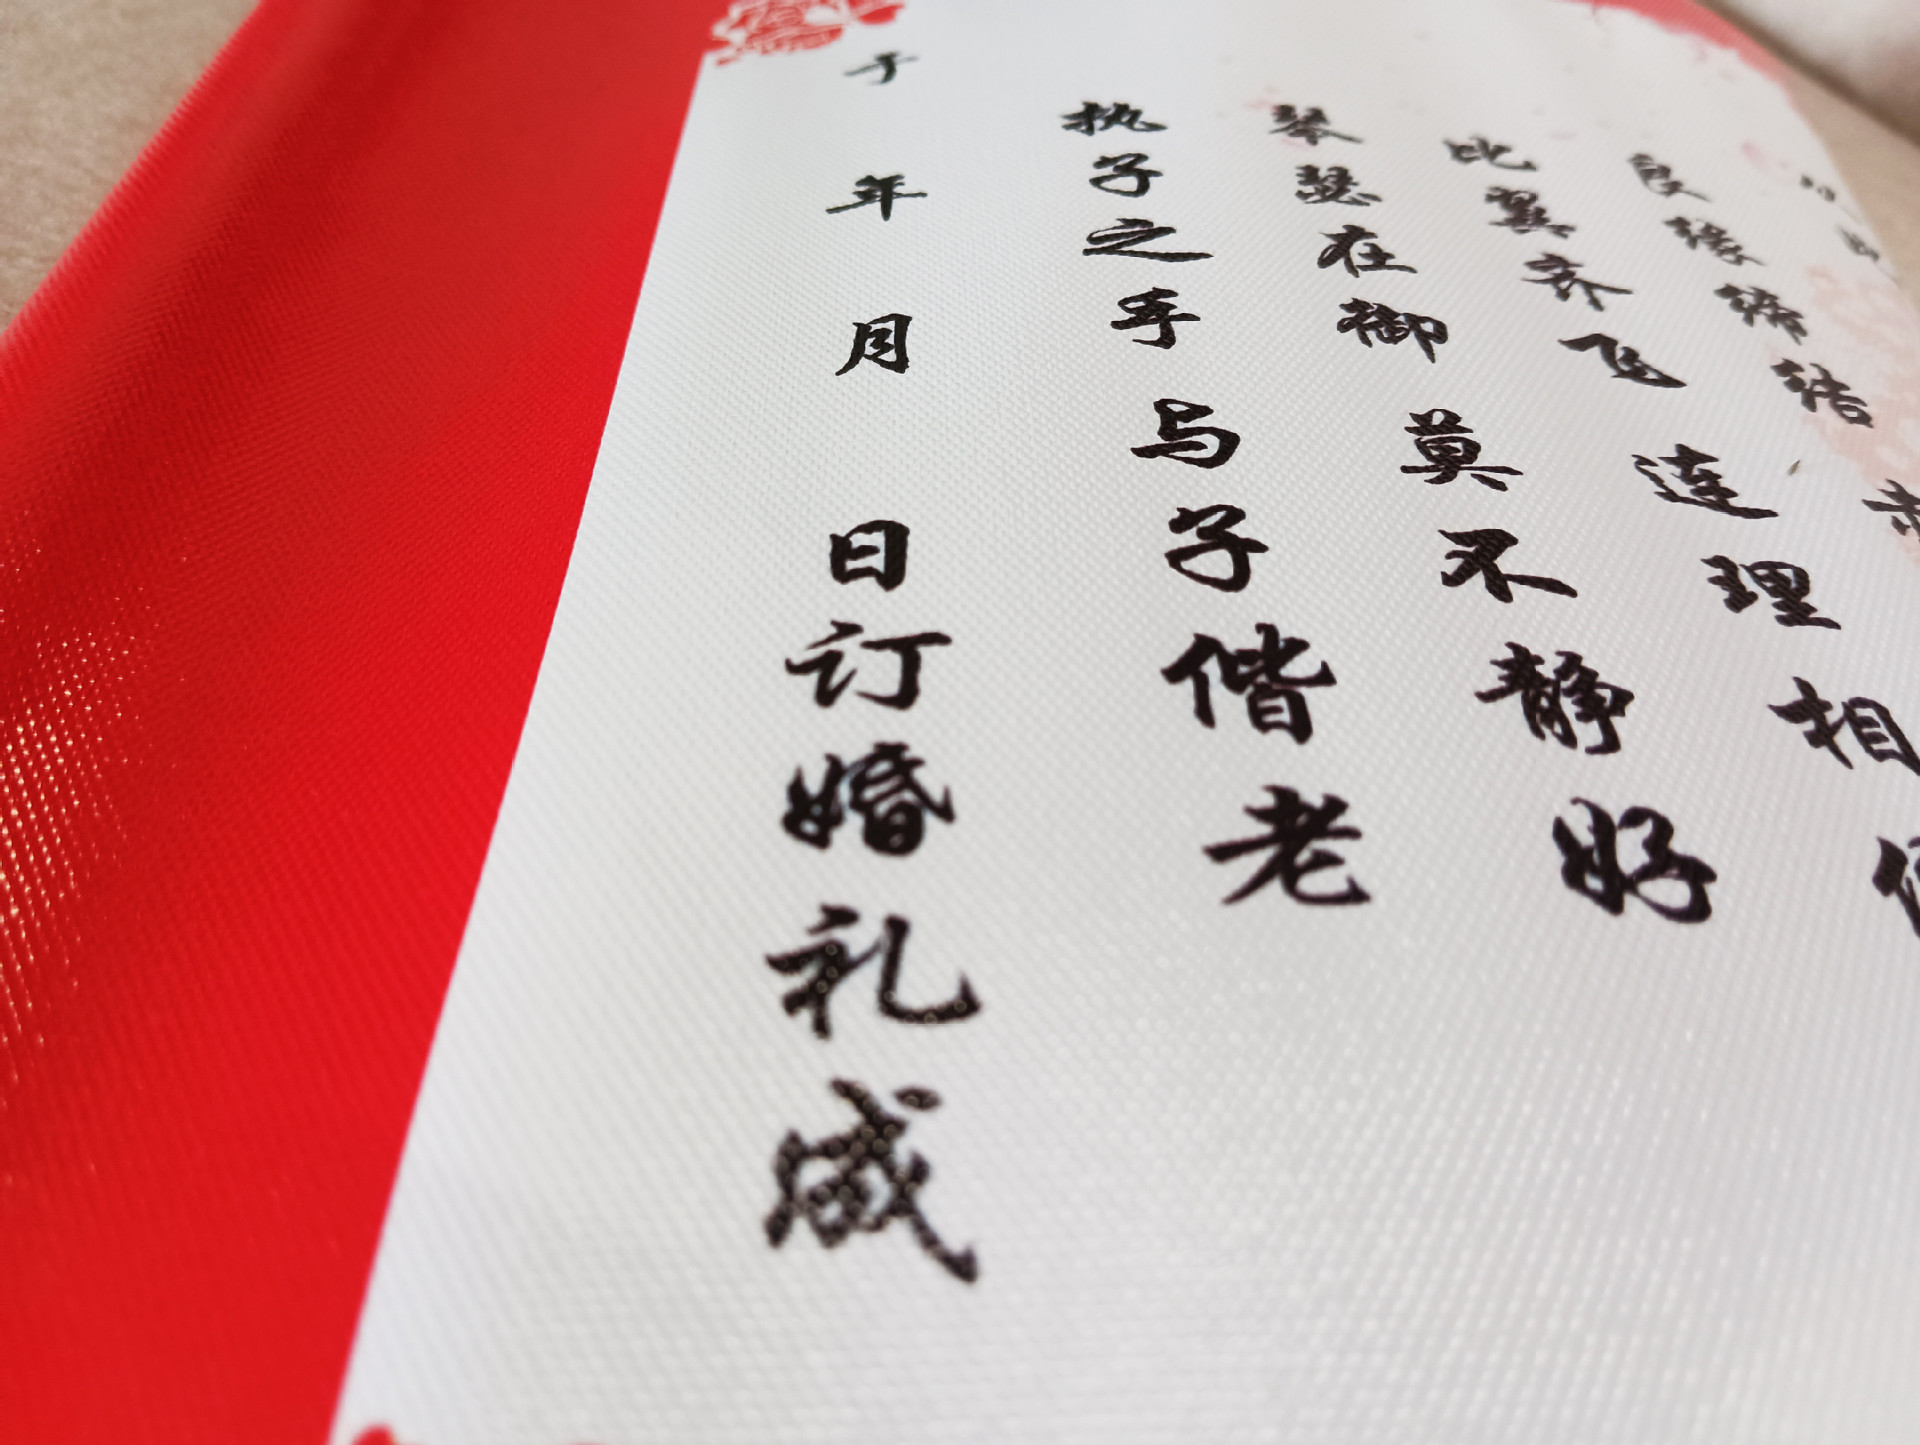 良缘缔结
比翼齐飞 连理相
琴瑟在御 莫不静好
执子之手 与子偕老
于 年 月 日订婚礼威